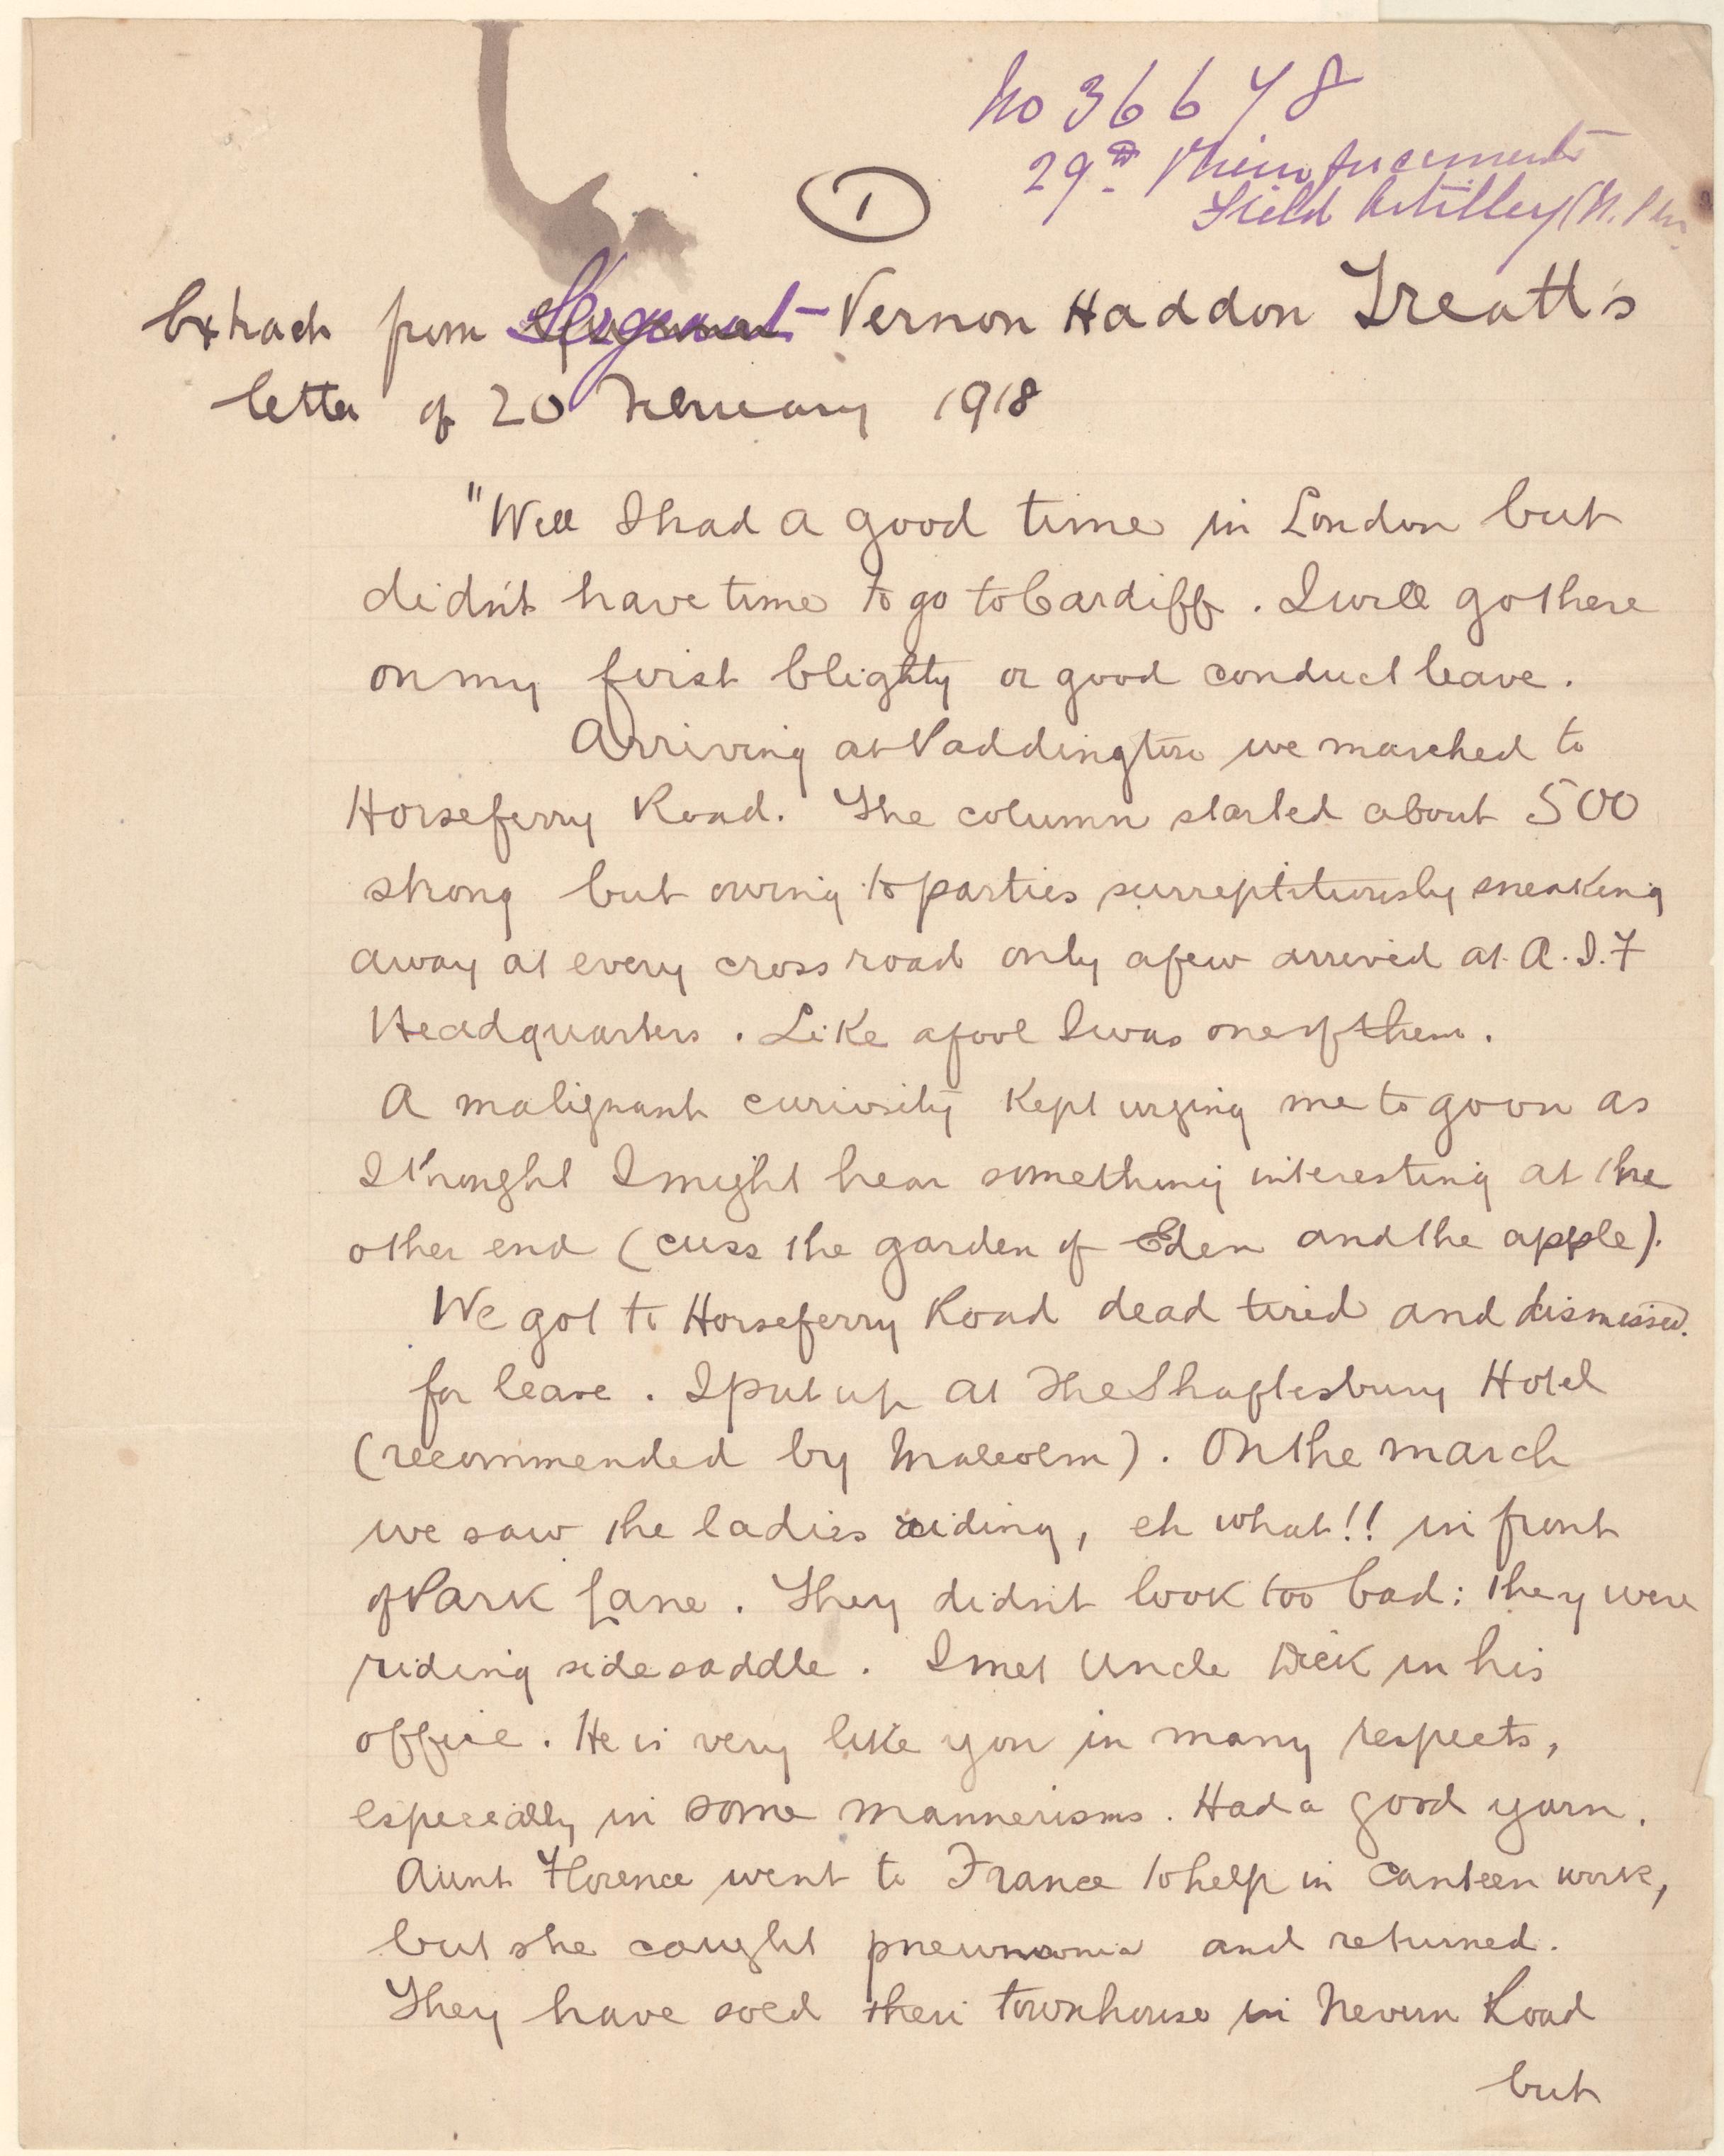 No 36648
29th Reinforcements
Field Artillery (N.S.W.
1
Extracts from Sergeant Vernon Haddon Treatt's
letter of 20 February 1918
"Well I had a good time in London but
didn't have time to go to Cardiff. I will go there
on my first blighty or good conduct leave.
Arriving at Paddington we marched to
Horseferry Road. The column started about 500
strong but owing to parties surreptitiously sneaking
away at every cross road only a few arrived at A.I.F
Headquarters. Like a fool I was one of them.
A malignant curiosity kept urging me to go on as
I thought I might hear something interesting at the
other end (cuss the garden of Eden and the apple).
We got to Horseferry Road dead tired and dismissed.
for leave. I put up at The Shaftesbury Hotel
(recommended by Malcolm). On the march
we saw the ladies riding, eh what!! in front
of Park Lane. They didn't look too bad: they were
riding sidesaddle. I met Uncle Dick in his
office. He is very like you in many respects,
especially in some mannerisms. Had a good yarn.
Aunt Florence went to France to help in canteen work,
but she caught pneumonia and returned.
They have sold their townhouse in Nevern Road
but